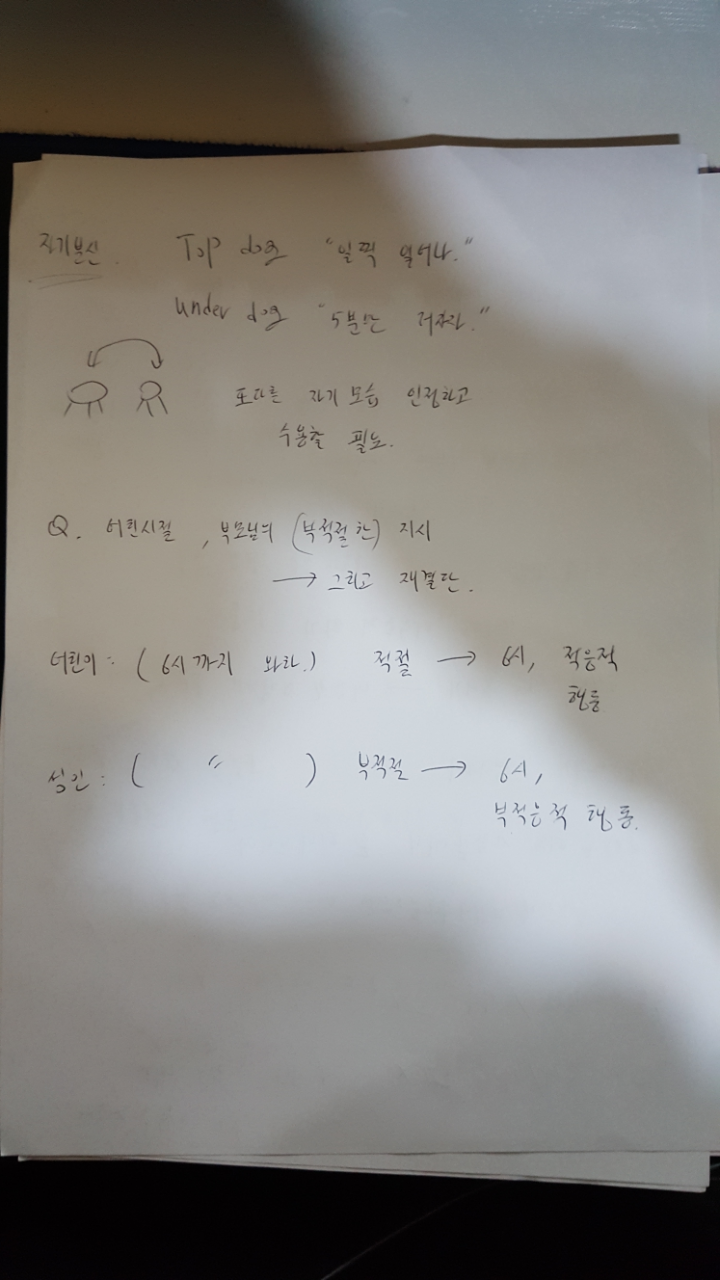 자기분신. Top dog "일찍 일어나."
under dog "5분만 더자자."
또다른 자기 모습 인정하고
수용할 필요.
Q. 어린시절, 부모님의 (부적절한) 지시
→ 그리고 재결단.
어린이 : (6시까지 와라.) 적절 → 6시, 적응적
행동
성인 : ( 〃 ) 부적절 → 6시,
부적응적 행동.